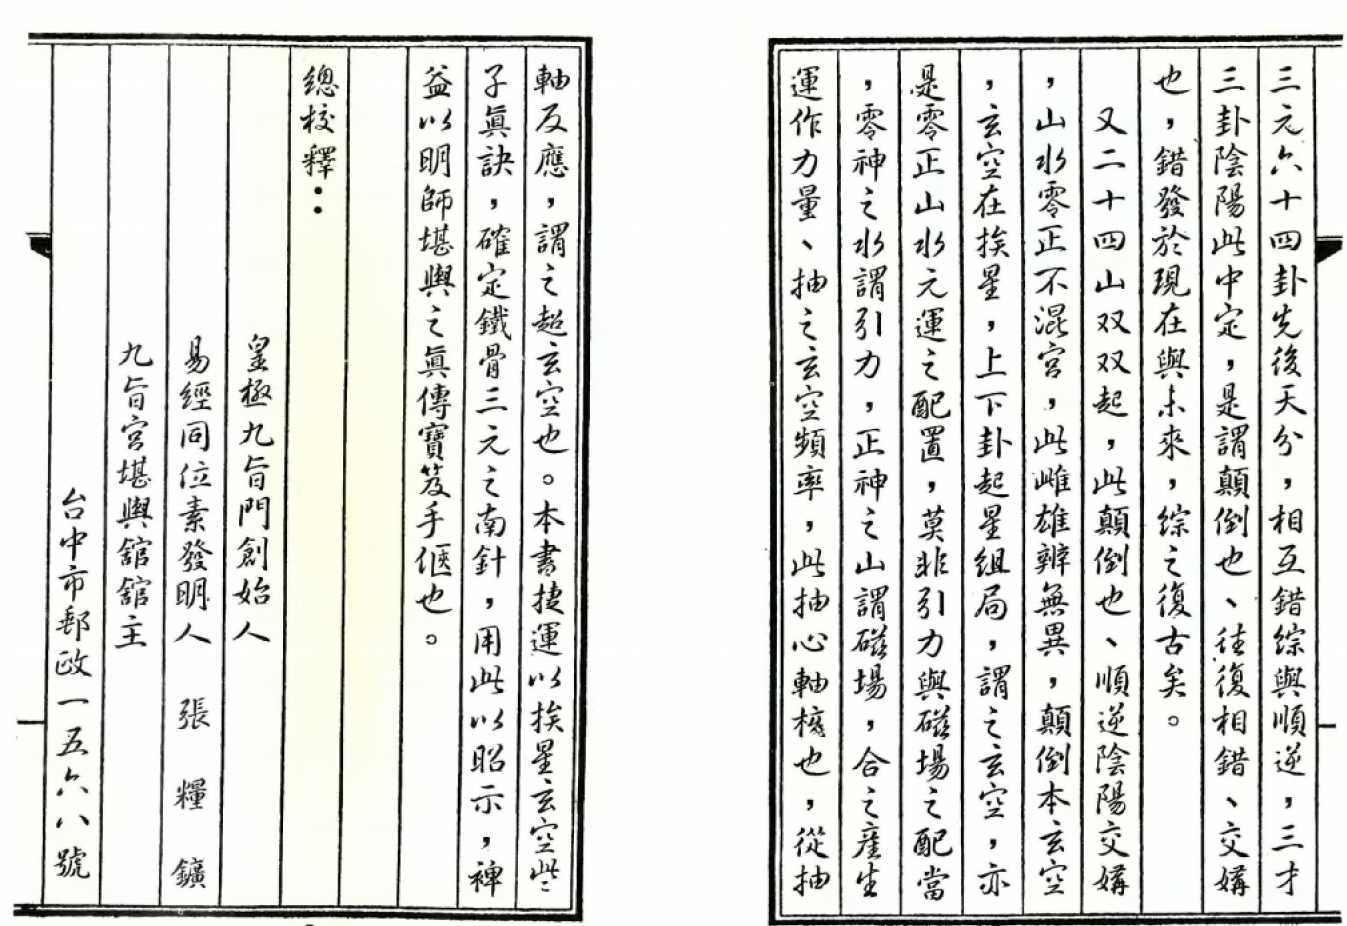 三元六十四卦先後天分，相互錯綜與順逆，三才
三卦陰陽此中定，是謂顛倒也、往復相錯、交媾
也，錯發於現在與未來，綜之復古矣。
又二十四山双双起，此顛倒也、順逆陰陽交媾
，山水零正不混宮，此雌雄辨無異，顛倒本玄空
，玄空在挨星，上下卦起星組局，謂之玄空，亦
是零正山水元運之配置，莫非引力與磁場之配當
，零神之水謂引力，正神之山謂磁場，合之產生
運作力量、抽之玄空頻率，此抽心軸樞也，從抽
軸反應，謂之超玄空也。本書捷運以挨星玄空些
子眞訣，確定鐵骨三元之南針，用此以昭示，裨
益以明師堪輿之眞傳寶笈手傴也。
總校釋：
皇極九旨門創始人
易經同位素發明人 張糧鑛
九旨宮堪輿舘舘主
台中市郵政一五六八號